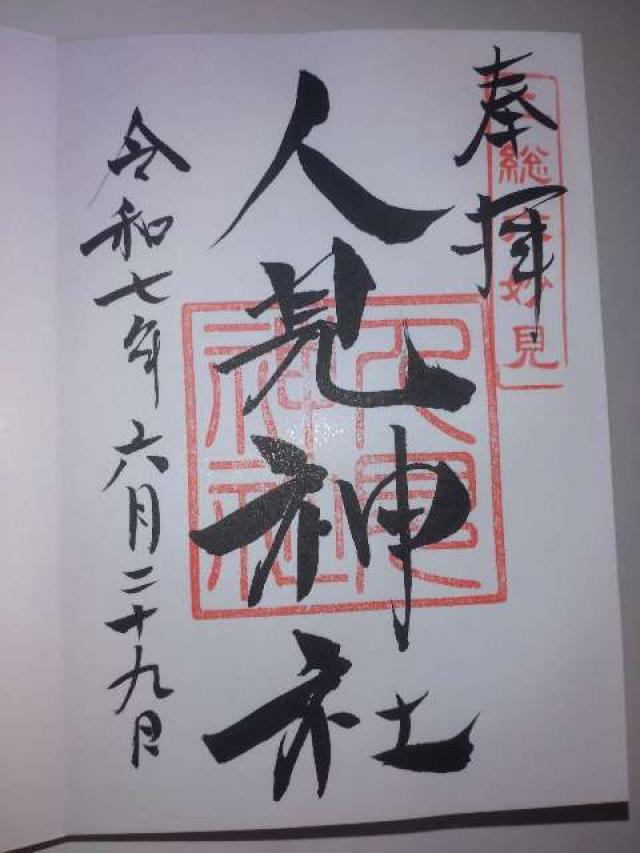 奉拝
上総 妙見
人見神社
人見神社
令和七年六月二十九日